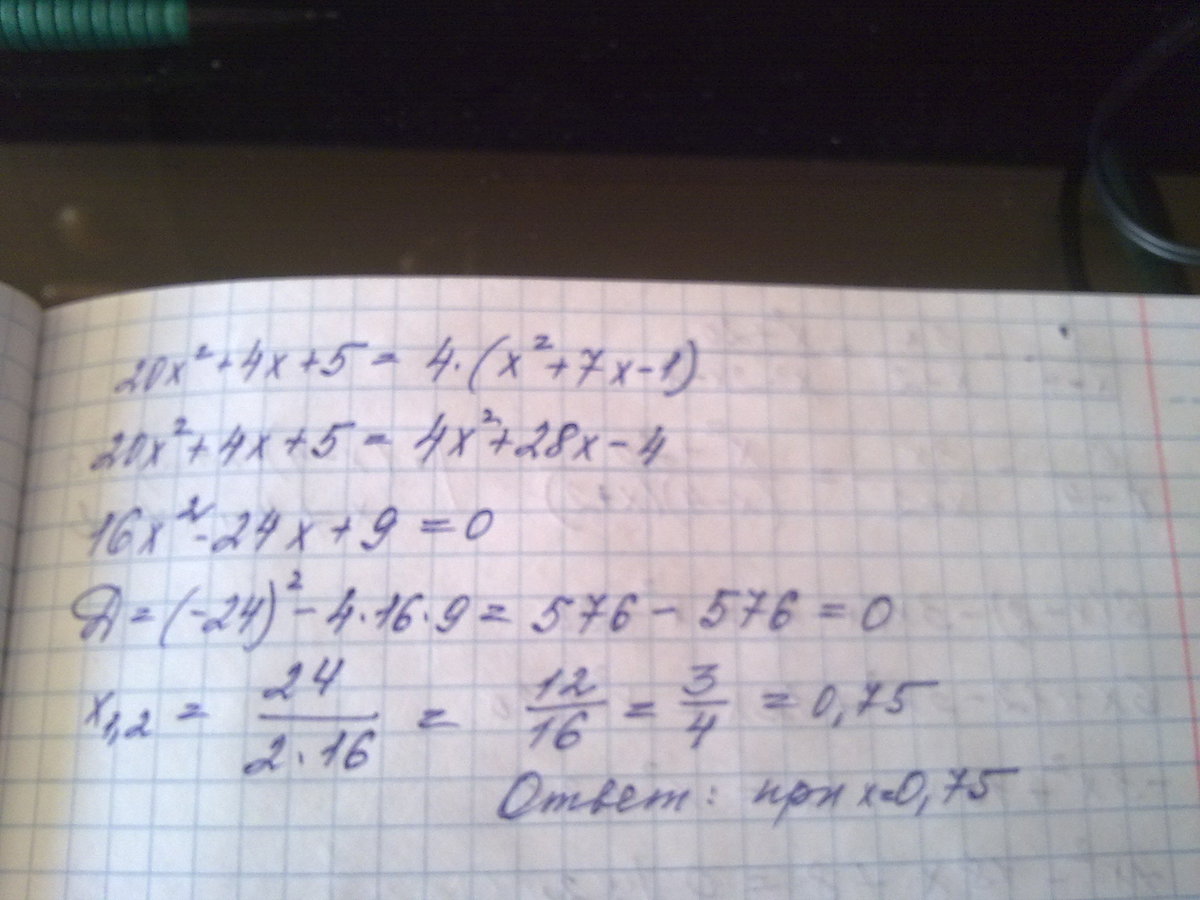 20x²+4x+5 = 4·(x²+7x-1)
20x²+4x+5 = 4x²+28x-4
16x²-24x+9=0
Д=(-24)²-4·16·9=576-576=0
x₁,₂ = 24/(2·16) = 12/16 = 3/4 = 0,75
Ответ: при x=0,75